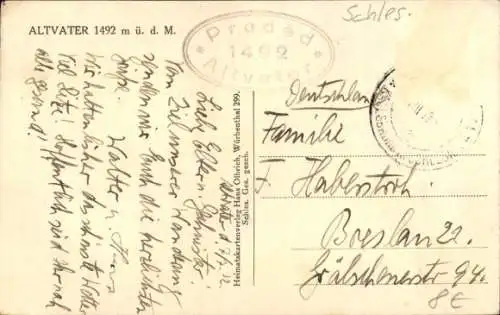 Schles.
ALTVATER 1492 m ü. d. M.
Praded
1492
Altvater
Liebe Eltern u. Geschwister!
Vom Ziel unserer Wanderung
senden wir Euch die herzlichsten
Grüße. Walter u. Hans
Wir hatten bisher das schönste Wetter
viel Hitze! Hoffentlich seid Ihr noch
alle gesund!
Heimatkartenverlag Hans Ollrich, Würbenthal 299.
Schles. Ges. gesch.
Deutschland
Familie
F. Haberstroh
Breslau 22.
94.
8€